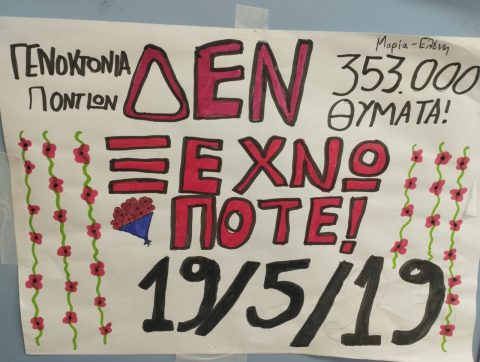 Μαρία - Ελένη
ΓΕΝΟΚΤΟΝΙΑ
ΠΟΝΤΙΩΝ
ΔΕΝ
353.000
ΘΥΜΑΤΑ!
ΞΕΧΝΩ
ΠΟΤΕ!
19/5/19